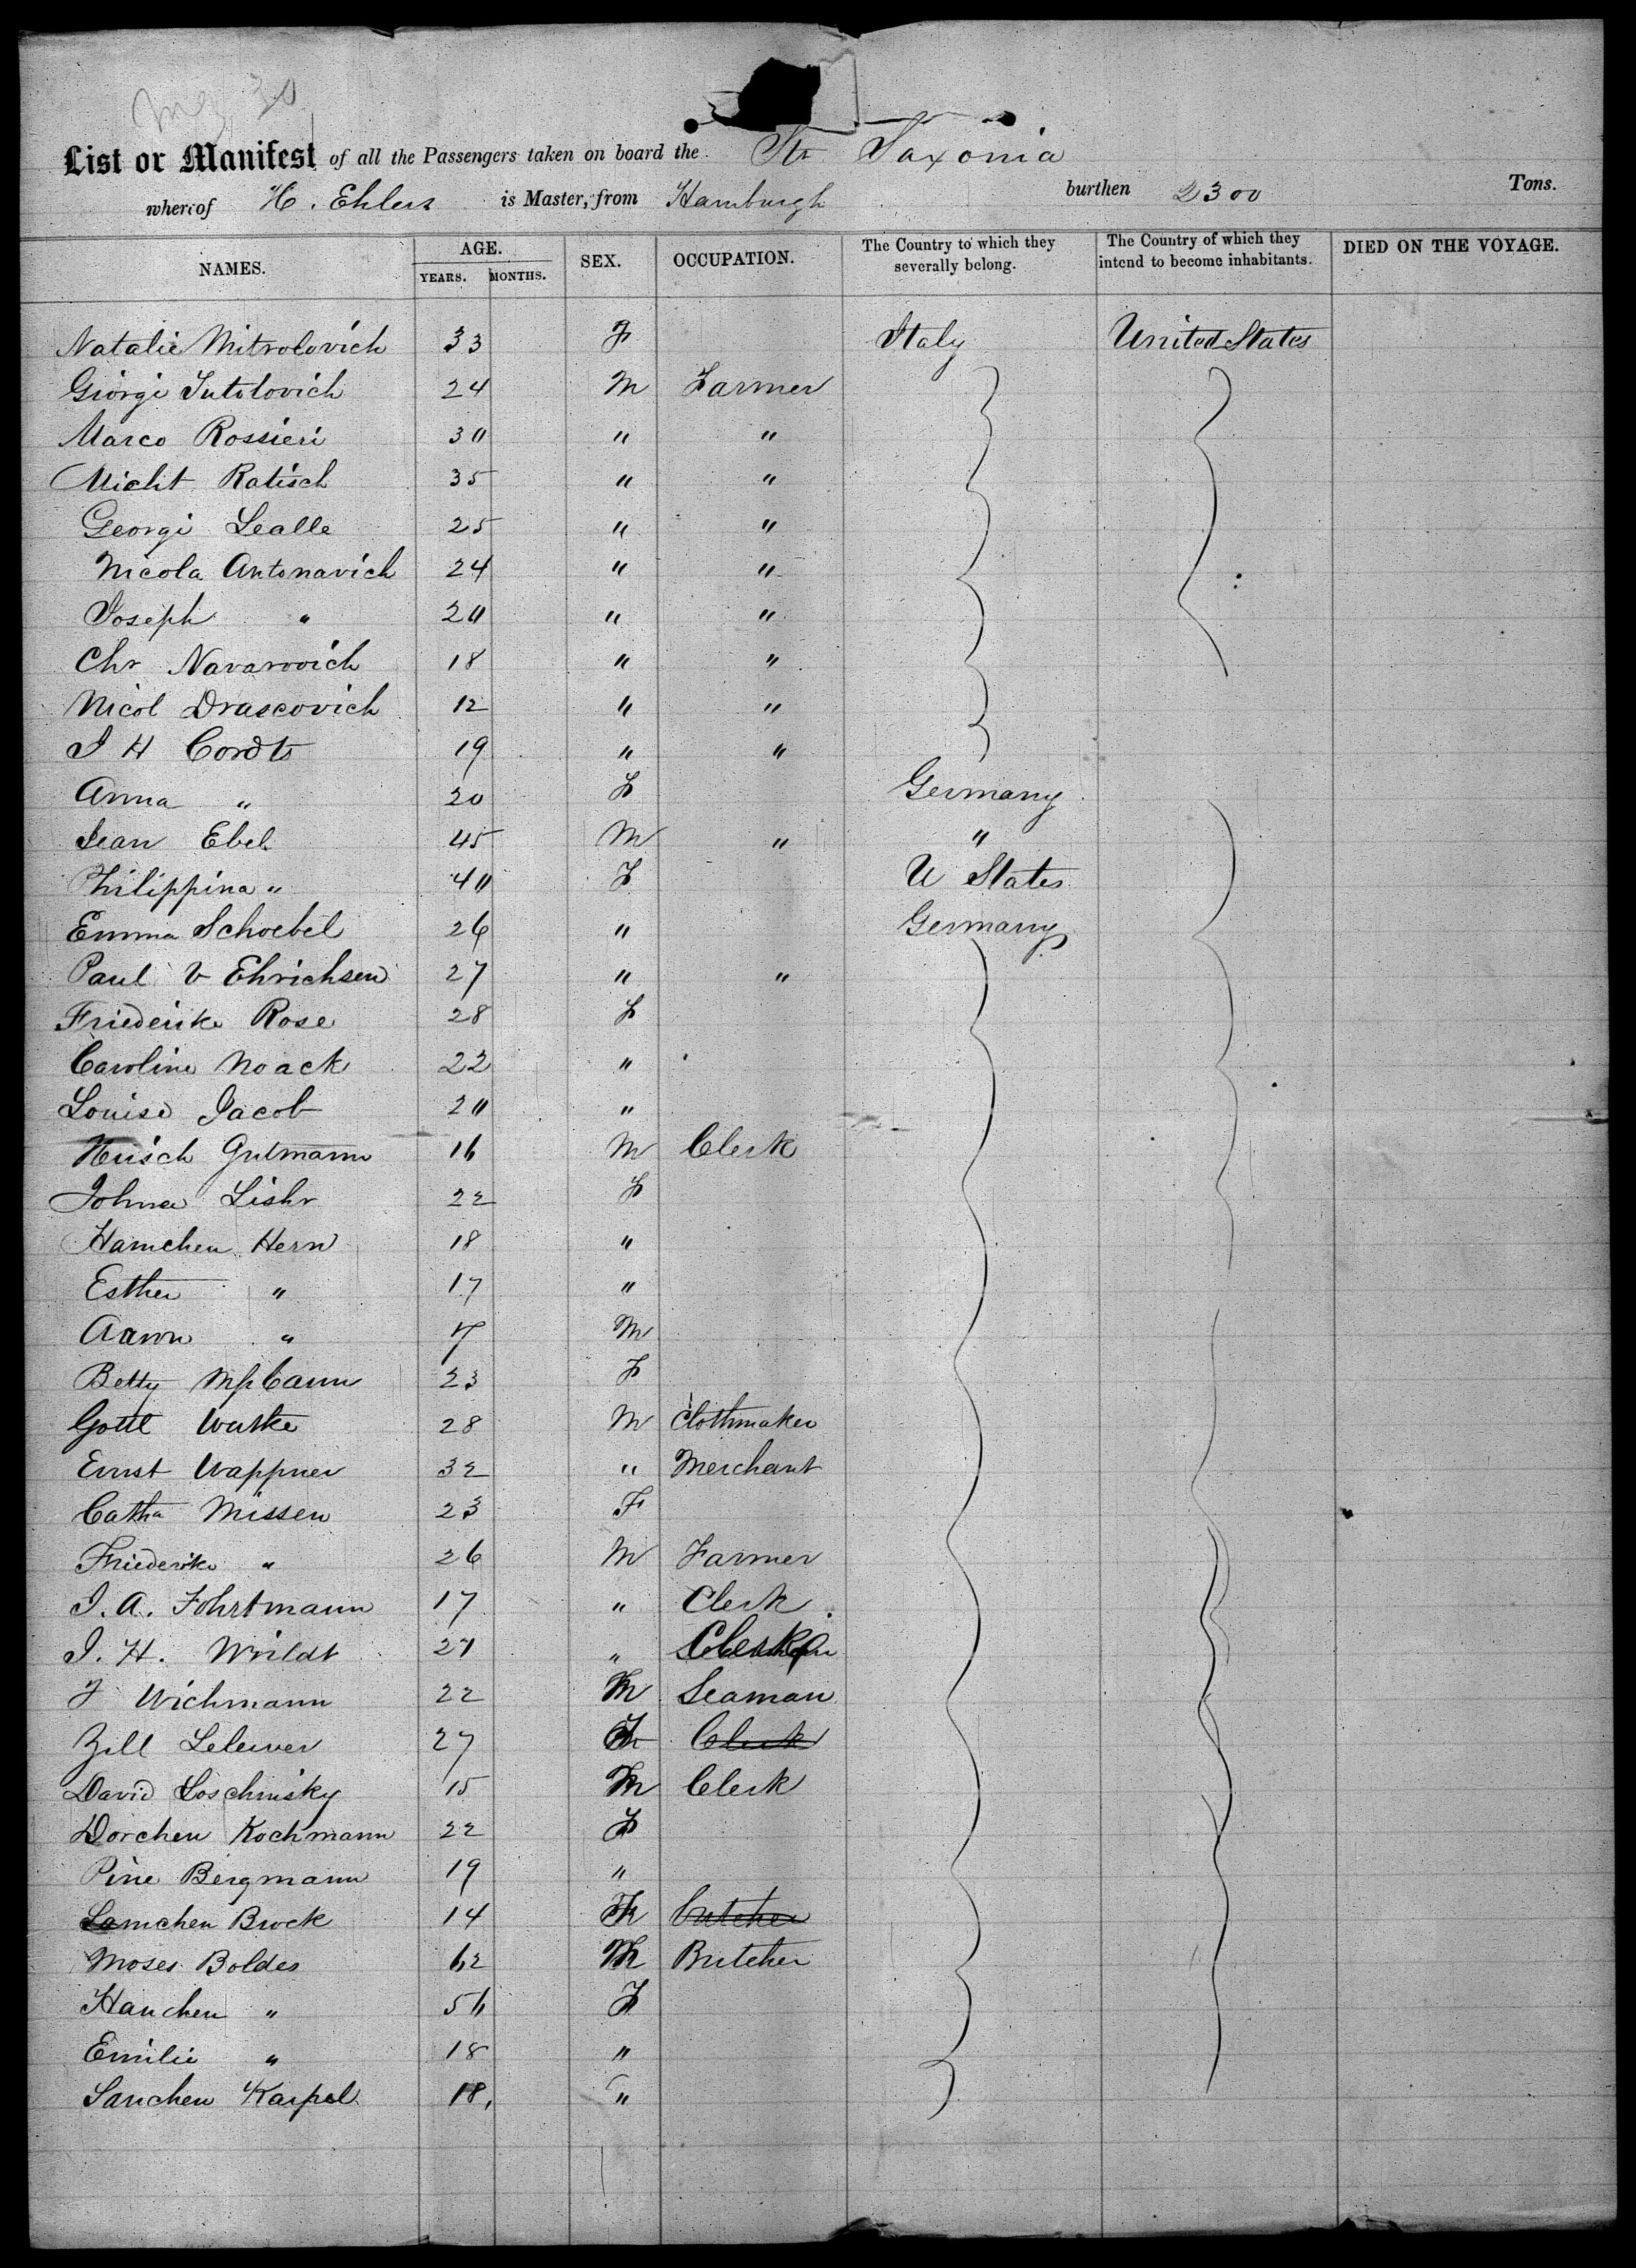 List or Manifest of all the Passengers taken on board the Str Saxonia
whereof H. Ehlers is Master, from Hamburgh burthen 2300 Tons.
NAMES. AGE. YEARS. MONTHS. SEX. OCCUPATION. The Country to which they severally belong. The Country of which they intend to become inhabitants. DIED ON THE VOYAGE.
Natalie Mitrolovich 33 F Italy United States
Giorgi Tutolovich 24 M Farmer
Marco Rossieri 30 " "
Micht Ratisch 35 " "
Georgi Lealle 25 " "
Nicola Antonavich 24 " "
Joseph " 20 " "
Chr Navarovich 18 " "
Nicol Drascovich 12 " "
J H Cordts 19 " "
Anna " 20 F Germany
Jean Ebel 45 M " "
Philippina " 40 F U States
Emma Schoebel 26 " Germany
Paul V Ehrichsen 27 " "
Friederike Rose 28 F
Caroline Noack 22 "
Louise Jacob 20 "
Hirsch Gutmann 16 M Clerk
Johna Lishr 22 F
Hannchen Hern 18 "
Esther " 17 "
Aaron " 7 M
Betty 23 F
Gottl Wutke 28 M Clothmaker
Ernst Wappner 32 " Merchant
Catha Missen 23 F
Friederike " 26 M Farmer
J. A. Fohrtmann 17 " Clerk
J. H. Wrildt 21 "
J Wichmann 22 M Seaman
Zill Lelewer 27 F Clerk
David Loschinsky 15 M Clerk
Dorchen Kochmann 22 F
Pine Bergmann 19 "
Lamchen Brock 14 F Butcher
Moses Boldes 62 M Butcher
Hanchen " 56 F
Emilie " 18 "
Sanchen Karpel 18 "